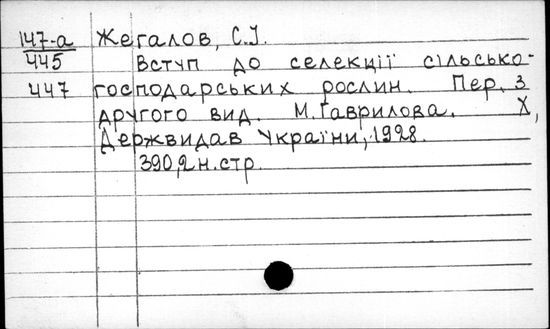 147-а Жегалов, С.І.
445 Вступ до селекції сільсько-
447 господарських рослин. Пер. з
другого вид. М.Гаврилова. Х,
Держвидав України, 1928.
390,2 н.стр.